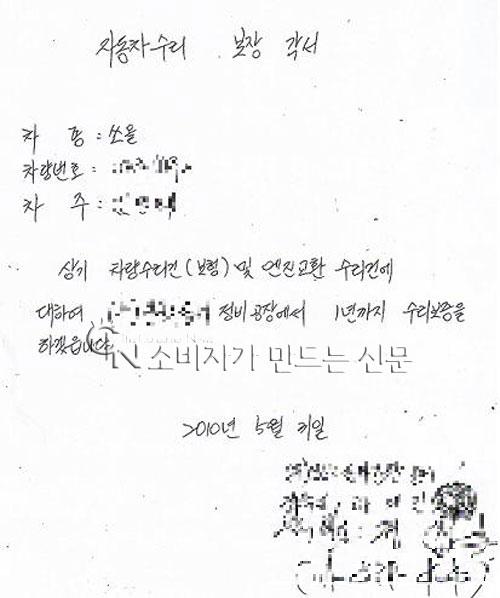 자동차수리 보장 각서
차 종 : 쏘울
차량번호 :
차 주 :
상기 차량수리건(보험) 및 엔진교환 수리건에
대하여 정비공장에서 1년까지 수리보증을
하겠읍니다
소비자가 만드는 신문
2010년 5월 31일